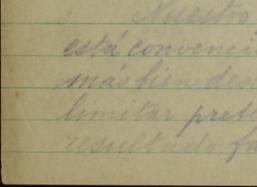 Nuestro
está convenci
más bien des
limitar prete
resultado fa